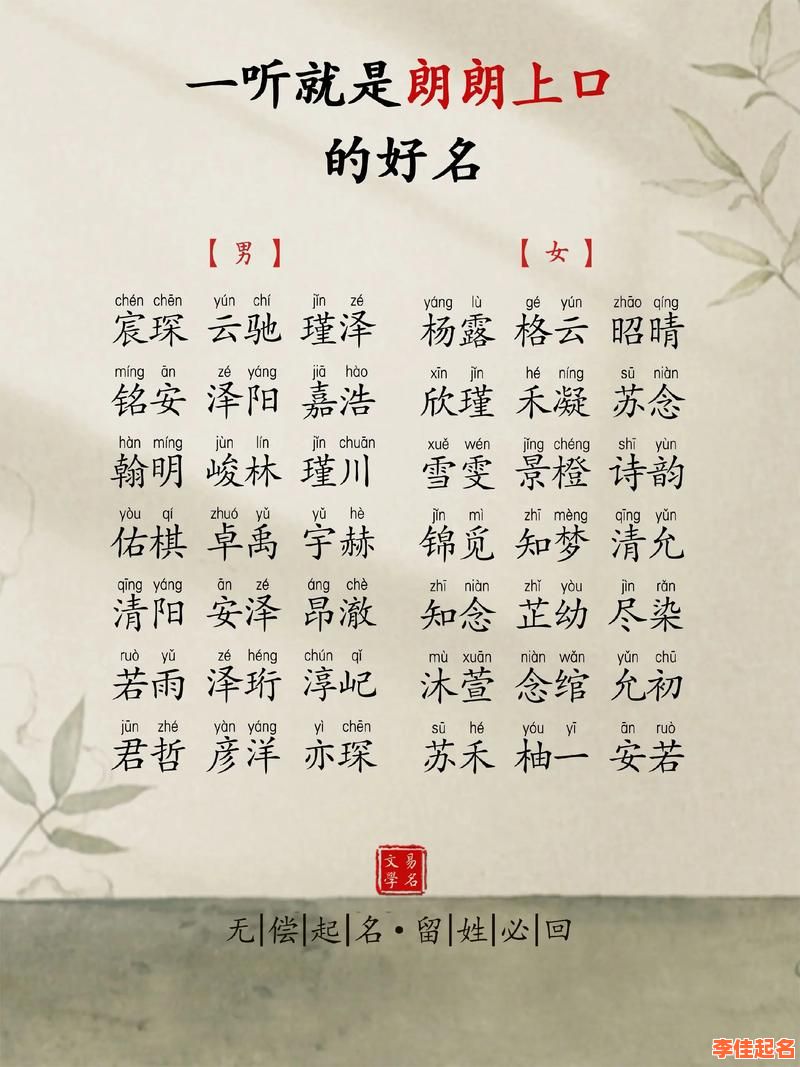 一听就是朗朗上口
的好名
【男】
chén chēn yún chí jǐn zé
宸琛 云驰 瑾泽
míng ān zé yáng jiā hào
铭安 泽阳 嘉浩
hàn míng jùn lín jǐn chuān
翰明 峻林 瑾川
yòu qí zhuó yǔ yǔ hè
佑棋 卓禹 宇赫
qīng yáng ān zé áng chè
清阳 安泽 昂澈
ruò yǔ zé héng chún qǐ
若雨 泽珩 淳屺
jūn zhé yàn yáng yì chēn
君哲 彦洋 亦琛
【女】
yáng lù gé yún zhāo qíng
杨露 格云 昭晴
xīn jǐn hé níng sū niàn
欣瑾 禾凝 苏念
xuě wén jǐng chéng shī yùn
雪雯 景橙 诗韵
jǐn mì zhī mèng qīng yǔn
锦觅 知梦 清允
zhī niàn zhǐ yòu jìn rǎn
知念 芷幼 尽染
mù xuān niàn wǎn yǔn chū
沐萱 念绾 允初
sū hé yóu yī ān ruò
苏禾 柚一 安若
易名
文學
无|偿|起|名·留|姓|必|回
李佳起名